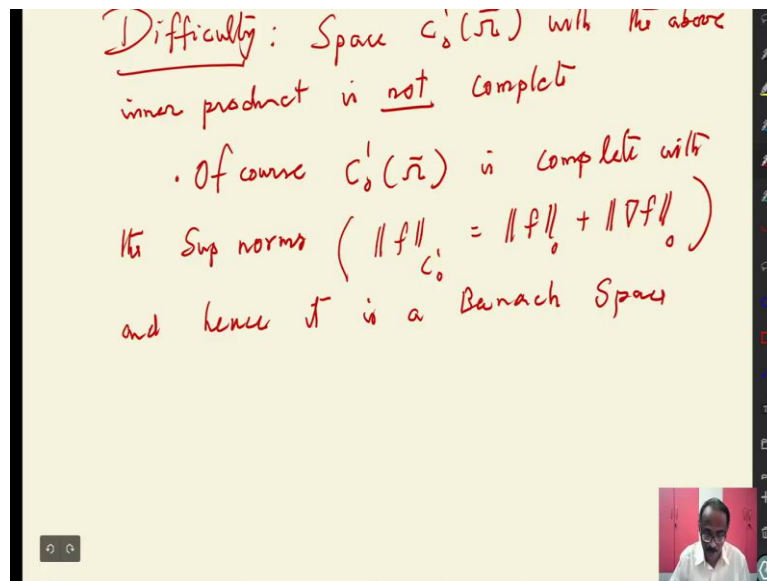 Difficulty: Space C₀¹(Ω̄) with the above
inner product is not complete
· Of course C₀¹(Ω̄) is complete with
the Sup norms ( ‖f‖_{C₀¹} = ‖f‖₀ + ‖∇f‖₀ )
and hence it is a Banach Space